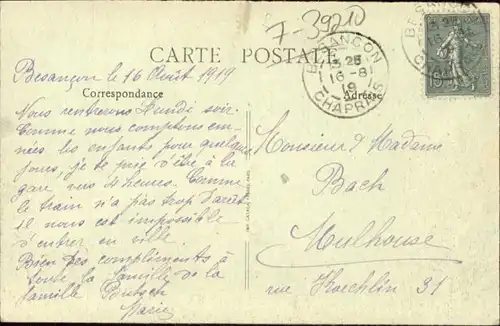 7-3920
CARTE POSTALE
BESANÇON
16-8
19
CHAPRAIS
Besançon le 16 Août 1919
Correspondance
Adresse
Nous rentrerons Lundi soir.
Comme nous comptons em-
nées les enfants pour quelques
jours, je te prie d'être à la
gare vers 4 heures. Comme
le train n'a pas trop d'arrêt
il nous est impossible
d'entrer en ville.
Bien des compliments à
toute la famille de la
famille
Marie
Monsieur & Madame
Bach
Mulhouse
rue Koechlin 31